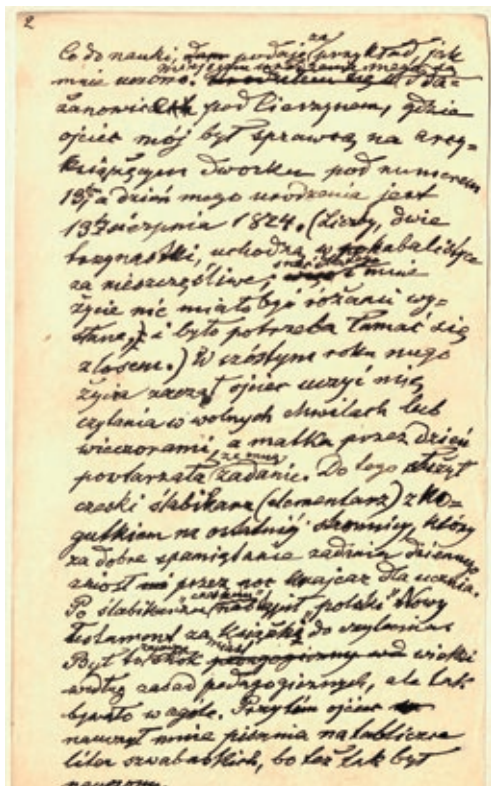 2
Co do nauki, podaję za przykład, jak
mnie uczono. miejscem urodzenia mego są
żanowice pod Cieszynem, gdzie
ojciec mój był sprawcą na arcy-
książęcym dworku pod numerem
13tym a dzień mego urodzenia jest
13ty sierpnia 1824. (Liczby, dwie
trzynastki, uchodzą w kabalistyce
za nieszczęśliwe; i mnie
życie nie miało być różami wy-
słane, i było potrzeba łamać się
z losem.) W szóstym roku mego
życia zaczął ojciec uczyć mię
czytania w wolnych chwilach lub
wieczorami, a matka przez dzień
powtarzała ze mną zadanie. Do tego służył
czeski ślabikarz (elementarz) z ko-
gutkiem na ostatniej stronnicy, który
za dobre spamiętanie zadania dziennego
zniósł przez noc krajcar dla ucznia.
Po ślabikarzu nastąpił „polski" Nowy
Testament za książkę do czytania.
Był to skok wielki
według zasad pedagogicznych, ale tak
bywało w ogóle. Przytem ojciec
nauczył mnie pisania na tabliczce
liter szwabaskich, bo też tak był
nauczony.